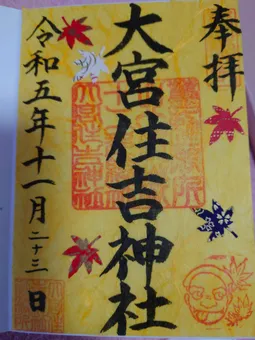 奉拝
大宮住吉神社
令和五年十一月二十三日